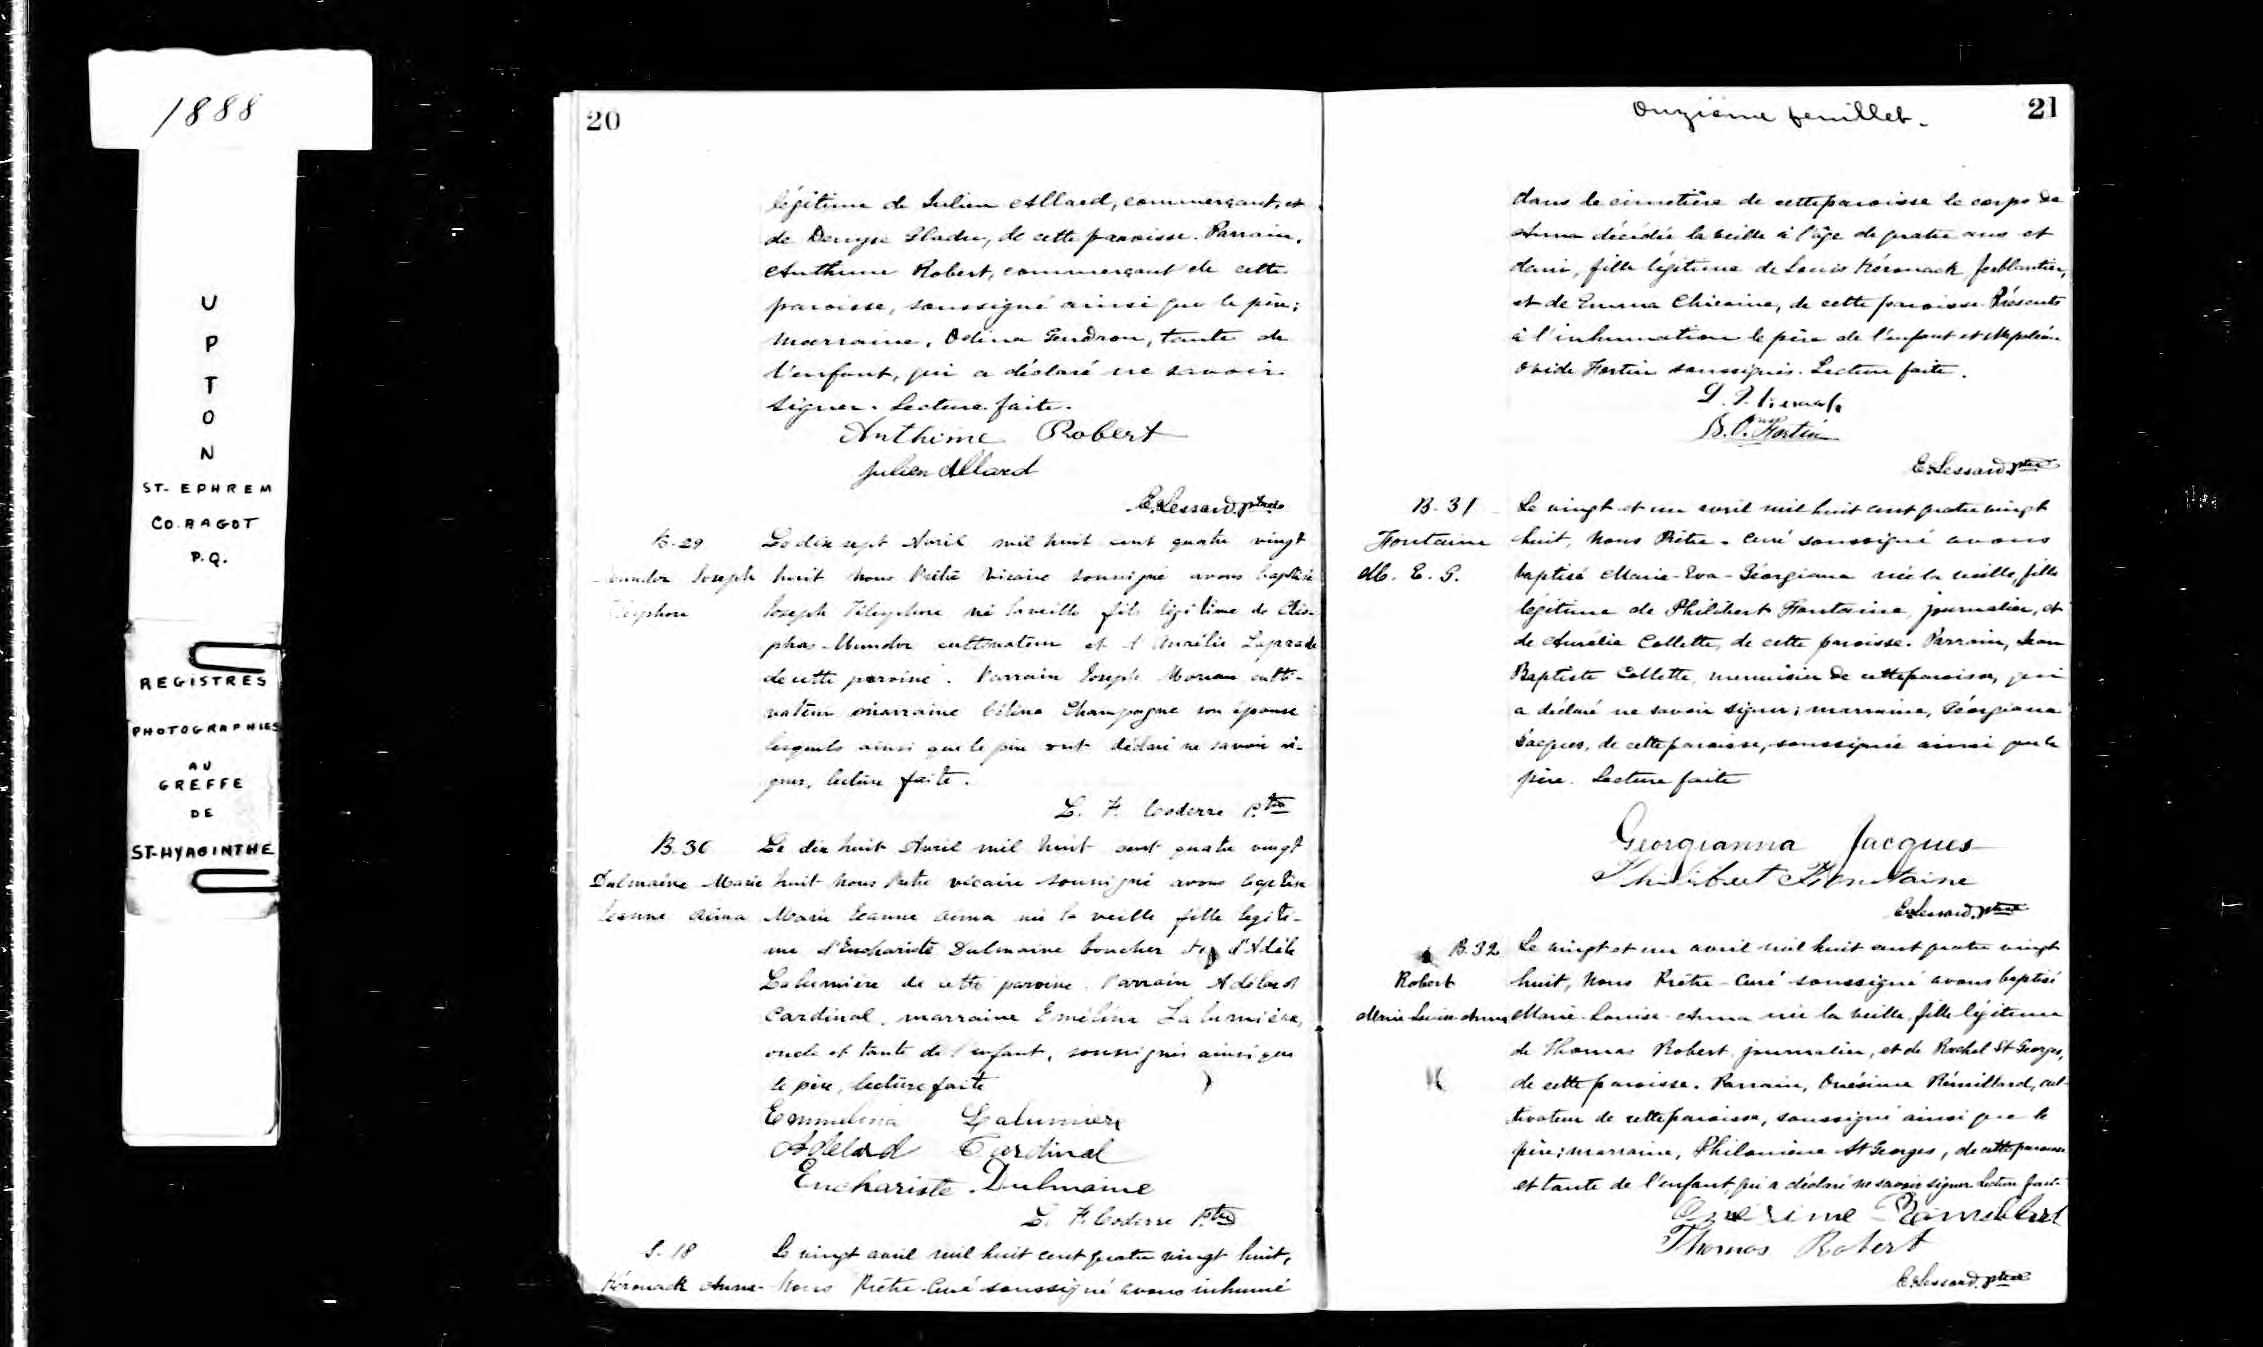 1888
U
P
T
O
N
ST-EPHREM
CO. BAGOT
P.Q.
REGISTRES
PHOTOGRAPHIES
AU
GREFFE
DE
ST-HYACINTHE
20
légitime de Julien Allard, commerçant, et
de Denyse Gladu, de cette paroisse. Parrain,
Anthime Robert, commerçant de cette
paroisse, soussigné ainsi que le père;
marraine, Odina Gendron, tante de
l'enfant, qui a déclaré ne savoir
signer. Lecture faite.
Anthime Robert
Julien Allard
E. Lessard ptre
B. 29
Joseph
Le dix sept Avril mil huit cent quatre vingt
huit Nous Prêtre Vicaire soussigné avons baptisé
Joseph Télesphore né la veille fils légitime de
cultivateur et d'Aurélie Laprade
de cette paroisse. Parrain Joseph Moreau culti-
vateur marraine Célina Champagne son épouse
lesquels ainsi que le père ont déclaré ne savoir si-
gner, lecture faite.
L. F. Coderre Ptre
B. 30
Dulmaine Marie
Jeanne Anna
Le dix huit Avril mil huit cent quatre vingt
huit Nous Prêtre vicaire soussigné avons baptisé
Marie Jeanne Anna née la veille fille légiti-
me d'Euchariste Dulmaine boucher et d'Adèle
Lalumière de cette paroisse. Parrain Adélard
Cardinal, marraine Emélina Lalumière,
oncle et tante de l'enfant, soussignés ainsi que
le père, lecture faite
Emmelina Lalumiere
Adelard Cardinal
Euchariste Dulmaine
L. F. Coderre Ptre
S. 18
Anna
Le vingt avril mil huit cent quatre vingt huit,
Nous Prêtre-Curé soussigné avons inhumé
Onzième feuillet.
21
dans le cimetière de cette paroisse le corps de
Anna décédée la veille à l'âge de quatre ans et
demi, fille légitime de Louis ferblantier,
et de Emma Chicoine, de cette paroisse. Présents
à l'inhumation le père de l'enfant et Napoléon
Ovide Fortin soussignés. Lecture faite.
E. Lessard ptre
B. 31
Fontaine
M. E. G.
Le vingt et un avril mil huit cent quatre vingt
huit, Nous Prêtre-Curé soussigné avons
baptisé Marie-Eva-Géorgiana née la veille, fille
légitime de Philibert Fontaine, journalier, et
de Aurélie Collette, de cette paroisse. Parrain, Jean
Baptiste Collette, menuisier de cette paroisse, qui
a déclaré ne savoir signer; marraine, Géorgiana
Jacques, de cette paroisse, soussignée ainsi que le
père. Lecture faite
Georgianna Jacques
Philibert Fontaine
E. Lessard ptre
B. 32
Robert
Marie-Louise-Anna
Le vingt et un avril mil huit cent quatre vingt
huit, Nous Prêtre-Curé soussigné avons baptisé
Marie-Louise-Anna née la veille, fille légitime
de Thomas Robert, journalier, et de Rachel St Georges,
de cette paroisse. Parrain, Onésime Rémillard, cul-
tivateur de cette paroisse, soussigné ainsi que le
père; marraine, Philomène St Georges, de cette paroisse
et tante de l'enfant qui a déclaré ne savoir signer Lecture faite
Onésime Rémillard
Thomas Robert
E. Lessard ptre